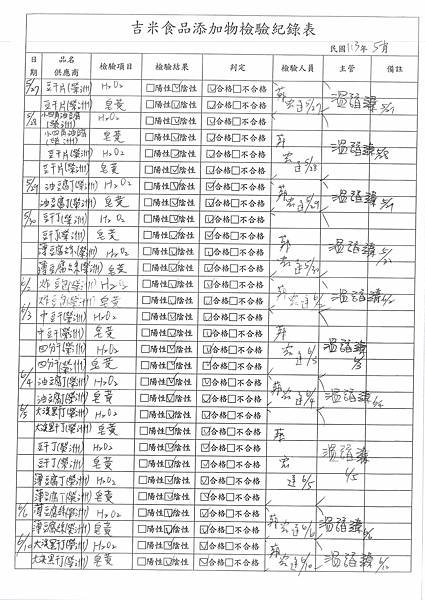 吉米食品添加物檢驗紀錄表
民國113年5月
日期 品名 供應商 檢驗項目 檢驗結果 判定 檢驗人員 主管 備註
5/27 豆干片(榮洲) H2O2 □陽性☑陰性 ☑合格□不合格
豆干片(榮洲) 皂黃 □陽性☑陰性 ☑合格□不合格 5/27 5/27
5/28 小四角油豆腐(榮洲) H2O2 □陽性☑陰性 ☑合格□不合格
小四角油豆腐(榮洲) 皂黃 □陽性☑陰性 ☑合格□不合格
豆干片(榮洲) H2O2 □陽性☑陰性 ☑合格□不合格
豆干片(榮洲) 皂黃 □陽性☑陰性 ☑合格□不合格 5/28 5/28
5/29 油豆腐丁(榮洲) H2O2 □陽性☑陰性 ☑合格□不合格
油豆腐丁(榮洲) 皂黃 □陽性☑陰性 ☑合格□不合格 5/29 5/29
5/30 豆干丁(榮洲) H2O2 □陽性☑陰性 ☑合格□不合格
豆干丁(榮洲) 皂黃 □陽性☑陰性 ☑合格□不合格
薄豆腐絲(榮洲) H2O2 □陽性☑陰性 ☑合格□不合格
薄豆腐絲(榮洲) 皂黃 □陽性☑陰性 ☑合格□不合格 5/30 5/30
6/2 炸豆包(榮洲) H2O2 □陽性☑陰性 ☑合格□不合格
炸豆包(榮洲) 皂黃 □陽性☑陰性 ☑合格□不合格 6/2 6/2
6/3 中豆干(榮洲) H2O2 □陽性☑陰性 ☑合格□不合格
中豆干(榮洲) 皂黃 □陽性☑陰性 ☑合格□不合格
四分干(榮洲) H2O2 □陽性☑陰性 ☑合格□不合格
四分干(榮洲) 皂黃 □陽性☑陰性 ☑合格□不合格 6/3 6/3
6/4 油豆腐丁(榮洲) H2O2 □陽性☑陰性 ☑合格□不合格
油豆腐丁(榮洲) 皂黃 □陽性☑陰性 ☑合格□不合格 6/4 6/4
6/5 大溪黑干(榮洲) H2O2 □陽性☑陰性 ☑合格□不合格
大溪黑干(榮洲) 皂黃 □陽性☑陰性 ☑合格□不合格
豆干丁(榮洲) H2O2 □陽性☑陰性 ☑合格□不合格
豆干丁(榮洲) 皂黃 □陽性☑陰性 ☑合格□不合格
薄豆腐丁(榮洲) H2O2 □陽性☑陰性 ☑合格□不合格
薄豆腐丁(榮洲) 皂黃 □陽性☑陰性 ☑合格□不合格 6/5 6/5
6/6 薄豆腐絲(榮洲) H2O2 □陽性☑陰性 ☑合格□不合格
薄豆腐絲(榮洲) 皂黃 □陽性☑陰性 ☑合格□不合格 6/6 6/6
6/10 大溪黑干(榮洲) H2O2 □陽性☑陰性 ☑合格□不合格
大溪黑干(榮洲) 皂黃 □陽性☑陰性 ☑合格□不合格 6/10 6/10